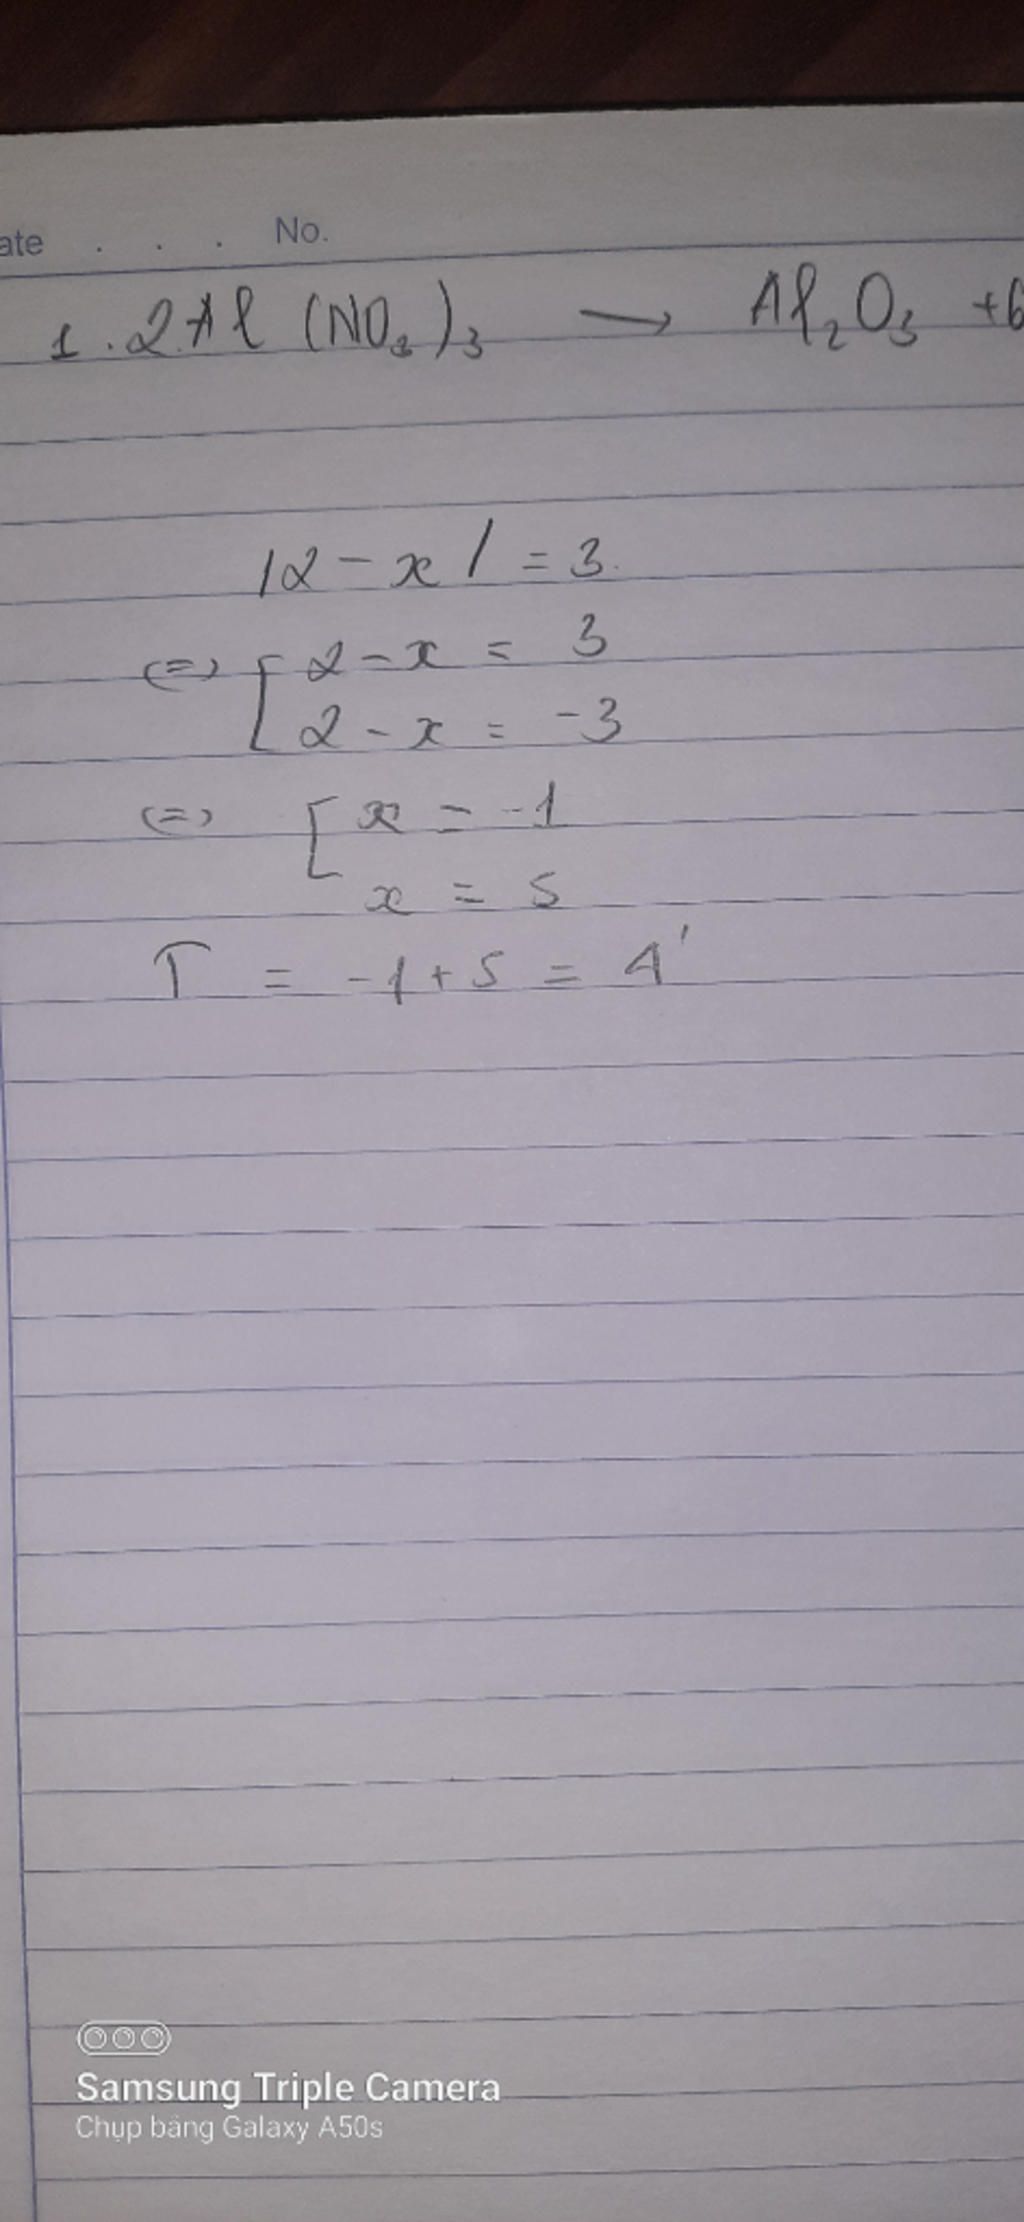 ate . . . No.
1. 2Al(NO₃)₃ → Al₂O₃ + 6
|2 - x| = 3.
(=) [ 2 - x = 3
2 - x = -3
(=) [ x = -1
x = 5
T = -1 + 5 = 4
Samsung Triple Camera
Chụp bằng Galaxy A50s